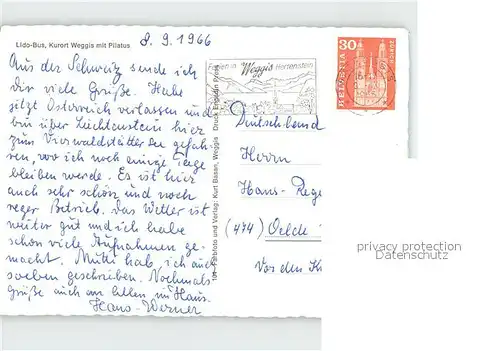 Lido-Bus, Kurort Weggis mit Pilatus
8.9.1966
Aus der Schweiz sende ich
Dir viele Grüße. Habe
jetzt Österreich verlassen und
bin über Liechtenstein hier
zum Vierwaldstätter See gefah-
ren, wo ich noch einige Tage
bleiben werde. Es ist hier
auch sehr schön und noch
reger Betrieb. Das Wetter ist
weiter gut und ich habe
schon viele Aufnahmen ge-
macht. Mutti hab ich auch
soeben geschrieben. Nochmals
Grüße auch an alle im Haus.
Hans-Werner
Farbfoto und Verlag: Kurt Basan, Weggis Druck Engadin Press
Ferien in Weggis Hertenstein
30
HELVETIA
Deutschland
Herrn
Hans-Rege
(474) Oelde
Vor den K
privacy protection
Datenschutz